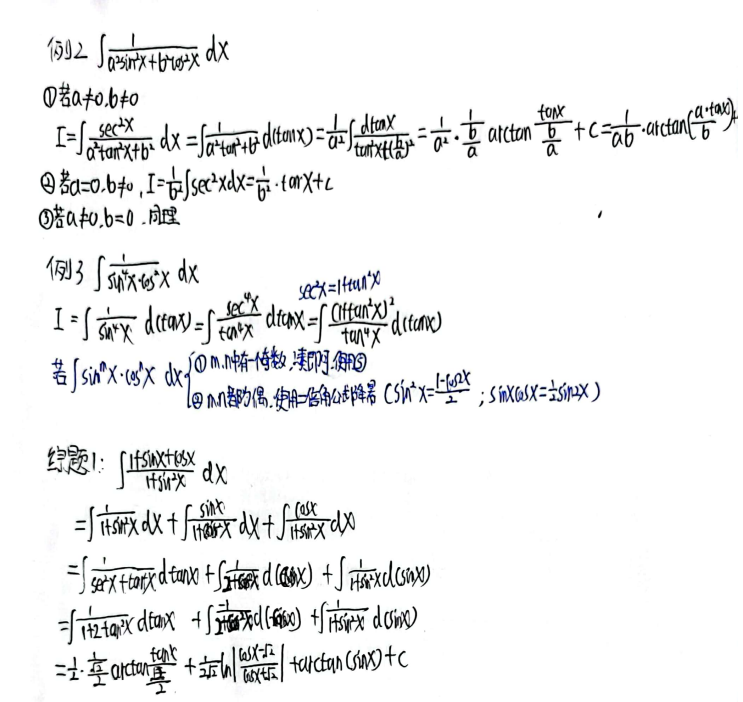 例2 ∫1/(a²sin²x+b²cos²x) dx
①若a≠0.b≠0
I=∫sec²x/(a²tan²x+b²) dx=∫1/(a²tan²x+b²) d(tanx)=1/a²∫dtanx/(tan²x+(b/a)²)=1/a²·1/(b/a) arctan tanx/(b/a)+C=1/(ab)·arctan(a·tanx/b)+
②若a=0.b≠0,I=1/b²∫sec²xdx=1/b²·tanx+c
③若a≠0,b=0.同理
例3 ∫1/(sin⁴x·cos²x) dx
sec²x=1+tan²x
I=∫1/sin⁴x d(tanx)=∫sec⁴x/tan⁴x dtanx=∫(1+tan²x)²/tan⁴x d(tanx)
若∫sinᵐx·cosⁿx dx{①m.n中有一奇数,凑即可.
②m.n都为偶.使用二倍角公式降幂(sin²x=(1-cos2x)/2;sinxcosx=½sin2x)
综题1:∫(1+sinx+cosx)/(1+sin²x) dx
=∫1/(1+sin²x)dx+∫sinx/(1+sin²x)dx+∫cosx/(1+sin²x)dx
=∫1/(sec²x+tan²x)dtanx+∫ +∫1/(1+sin²x)d(sinx)
=∫1/(1+2tan²x)dtanx +∫ +∫1/(1+sin²x) d(sinx)
=½·1/(√2/2) arctan tanx/(√2/2)+1/(2√2)ln|(cosx-√2)/(cosx+√2)|+arctan(sinx)+C